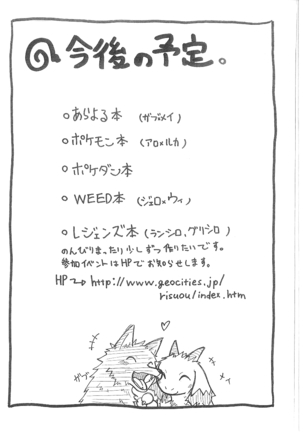 今後の予定。
○あらよる本 (ガブ×メイ)
○ポケモン本 (アロ×ルカ)
○ポケダン本
○WEED本 (ジェロ×ウィ)
○レジェンズ本 (ランシロ、グリシロ)
のんびりまったり少しずつ作りたいです。
参加イベントはHPでお知らせします。
HP→ http://www.geocities.jp/
risuou/index.htm
ガブ
メイ